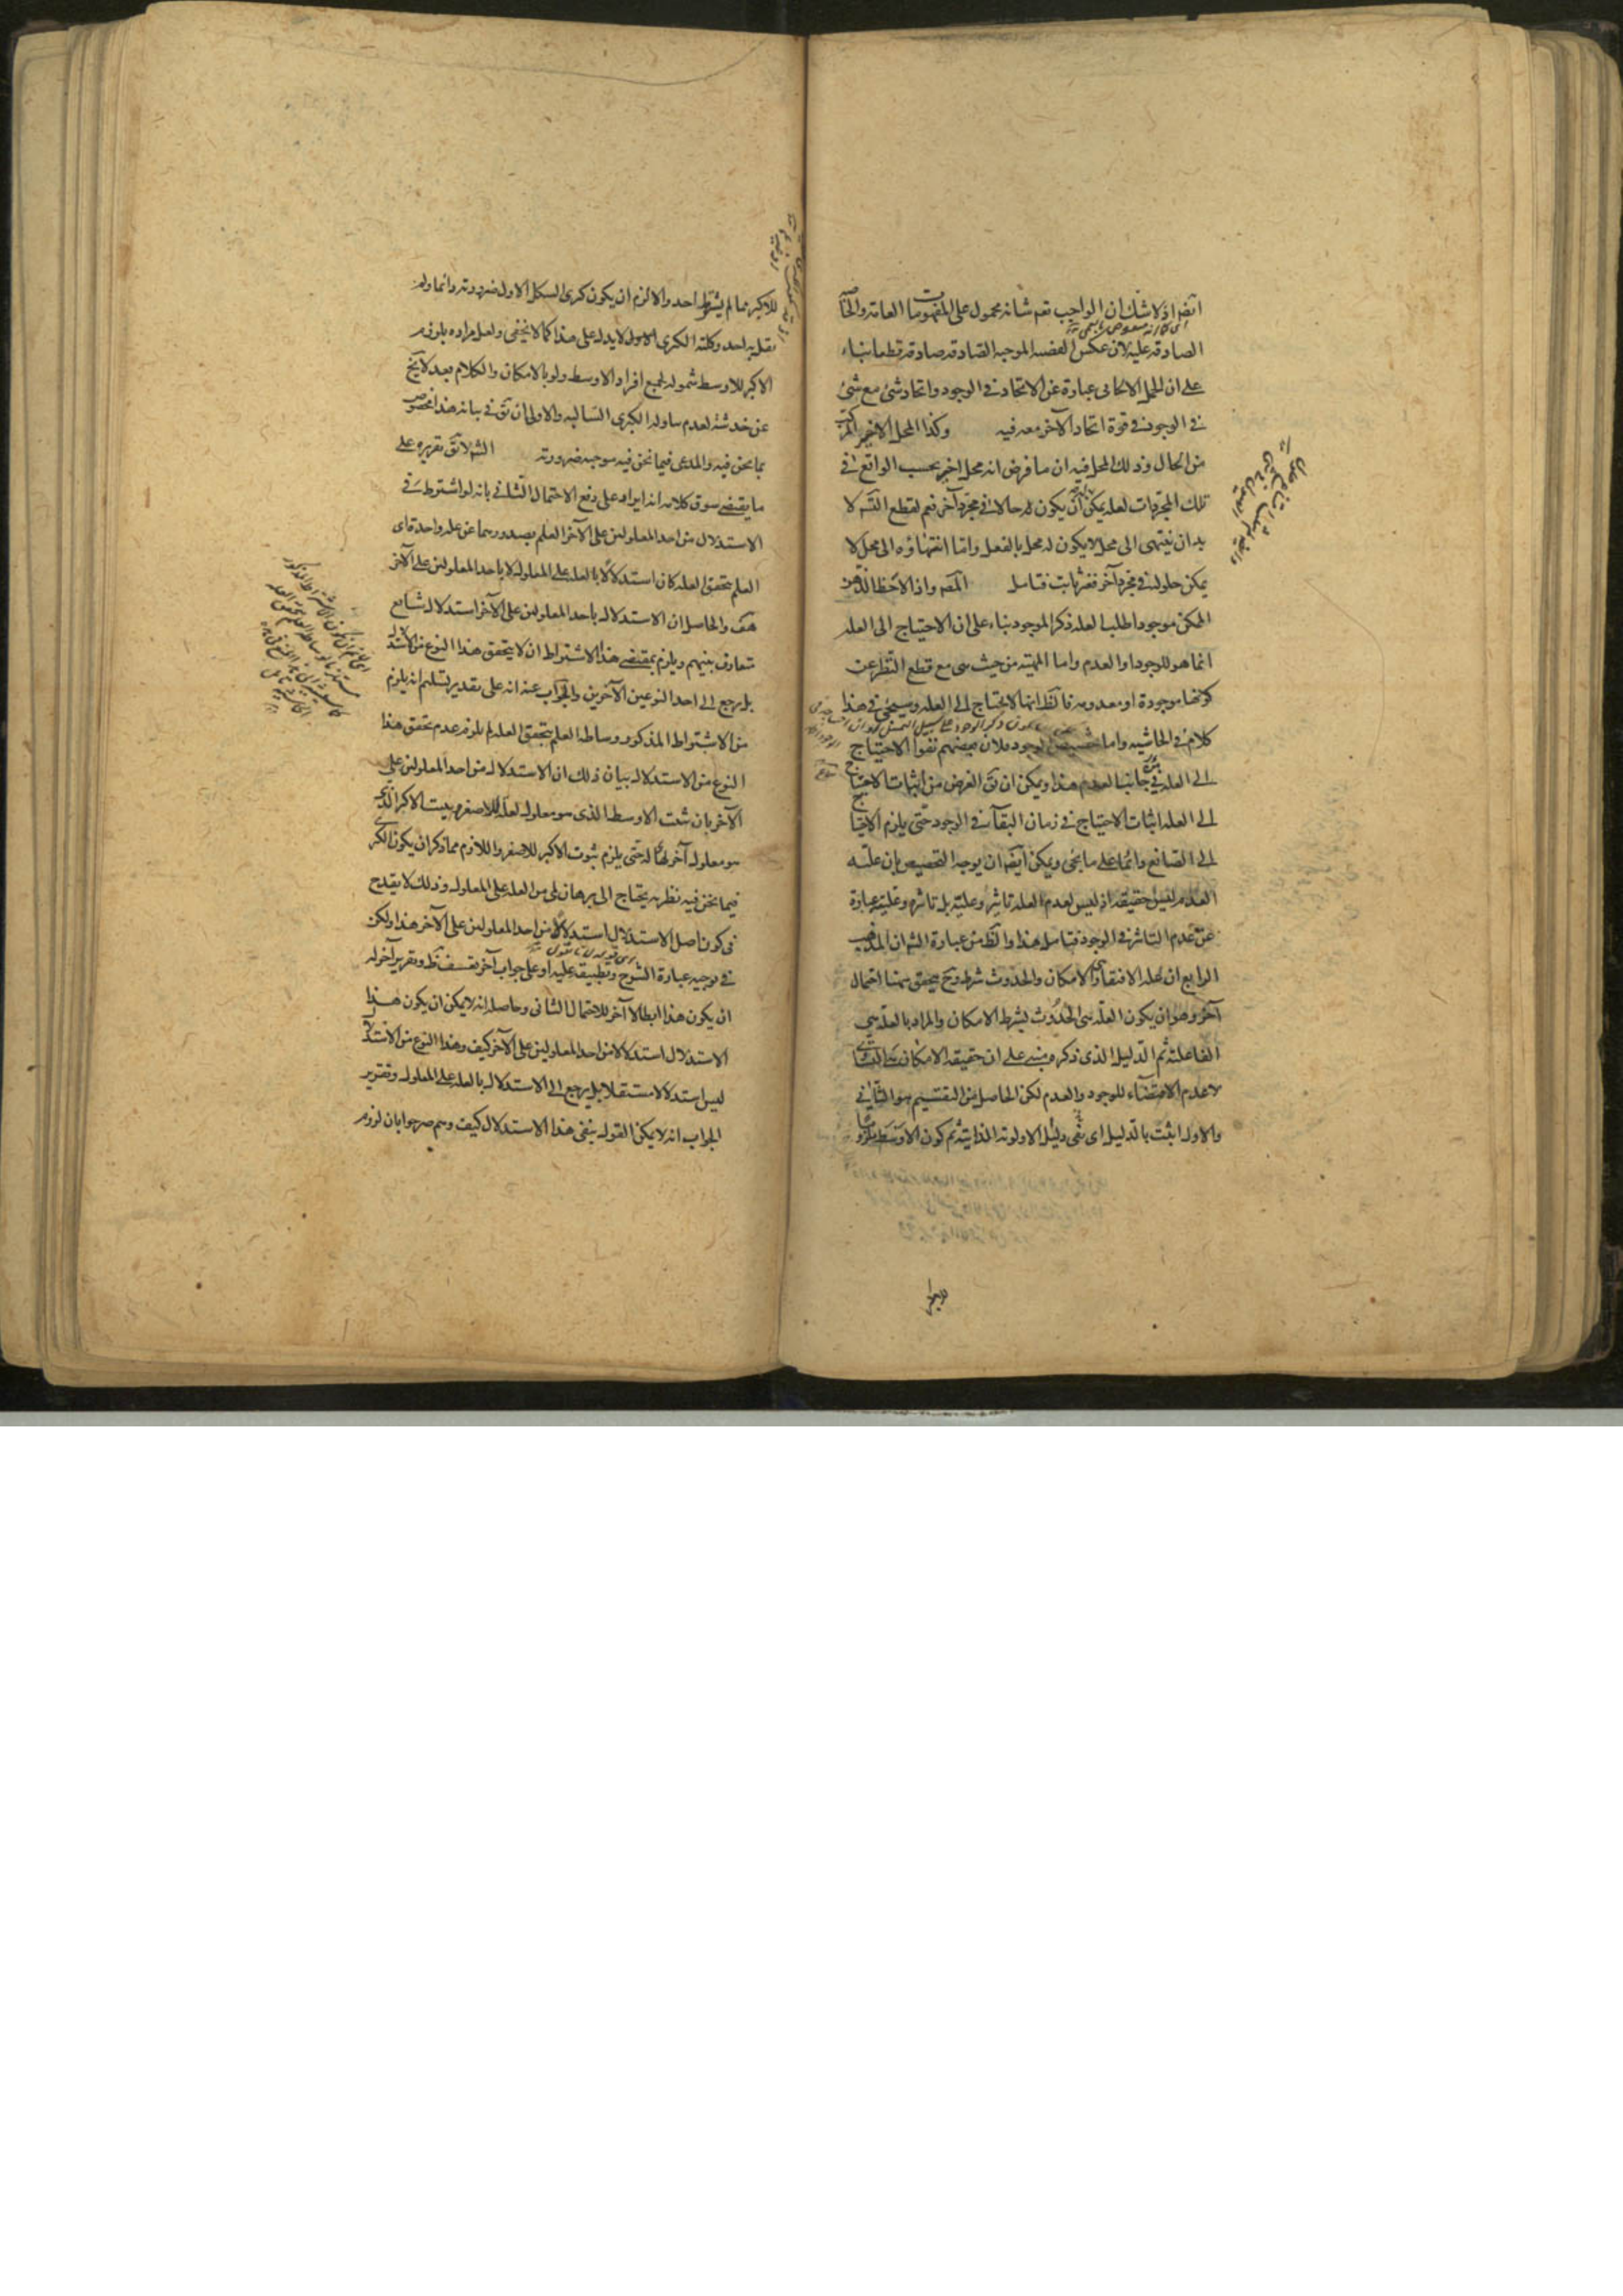 ايضا اذ لا شك ان الواجب تعم شانه محمول على المفهومات العامة والخاصة
الصادقة عليه لان عكس القضية الموجبة الصادقة صادقة قطعا بناء
على ان الحمل الايجابى عبارة عن الاتحاد فى الوجود واتحاد شئ مع شئ
فى الوجود فى قوة اتحاد الآخر معه فيه وكذا المحل الاخير
من الحال وذلك المحل فيه ان ما فرض انه محل اخير بحسب الواقع فى
تلك المجردات لعله يمكن ان يكون له حالا فى مجرد آخر نعم لقطع التسـ لا
بد ان ينتهى الى محل لا يكون له محل بالفعل واما انتهاؤه الى محل لا
يمكن حلوله فى مجرد آخر فغير ثابت فتامل المصـ واذا لاحظ الذهن
الممكن موجودا طلب العلة ذكر الموجود بناء على ان الاحتياج الى العلة
انما هو للوجود او العدم واما المهية من حيث هى مع قطع النظر عن
كونها موجودة او معدومة فالظ انها لا يحتاج الى العلة وسيجئ فى هذا
كلام فى الحاشية واما تخصيص الوجود فلان بعضهم نفوا الاحتياج
الى العلة فى جانب العدم هذا ويمكن ان يق الغرض من اثبات الاحتياج
الى العلة اثبات الاحتياج فى زمان البقاء فى الوجود حتى يلزم الاحتياج
الى الصانع دائما على ما يجئ ويمكن ايضا ان يوجه التخصيص بان علية
العدم ليس حقيقة اذ ليس لعدم العلة تاثير وعلية بل تاثيره وعليته عبارة
عن عدم التاثير فى الوجود فتامل هذا والظ من عبارة الشـ ان المذهب
الرابع ان علة الافتقار الامكان والحدوث شرط وح يتحقق ههنا احتمال
آخر وهو ان يكون العلة هى الحدوث بشرط الامكان والمراد بالعلة هى
الفاعلية ثم الدليل الذى ذكره مبنى على ان حقيقة الامكان هى التساوى
لا عدم الاقتضاء للوجود والعدم لكن الحاصل من التقسيم هو الثانى
والاول اثبت بالدليل اى نفى دليل الاولوية الذاتية ثم كون الاوسط ملزوما
للاكبر مما لم يشترط احد والا لزم ان يكون كبرى الشكل الاول ضرورية دائما ولم
يقل به احد وكلية الكبرى الاول لا يدل على هذا كما لا يخفى ولعل مراده بلزوم
الاكبر للاوسط شموله لجميع افراد الاوسط ولو بالامكان والكلام بعد لا يخ
عن خدشة لعدم تناوله الكبرى السالبة والاولى ان يق فى بيانه هذا مخصوص
بما نحن فيه والمدعى فيما نحن فيه موجبة ضرورية الشـ لا يق تقريره على
ما يقتضى سوق كلامه انه ايراد على دفع الاحتمال الثانى بانه لو اشترط فى
الاستدلال من احد المعلولين على الآخر العلم بصدورهما عن علة واحدة اى
العلم بتحقق العلة كان استدلالا بالعلة على المعلول لا باحد المعلولين على الآخر
هف والحاصل ان الاستدلال باحد المعلولين على الآخر استدلال شايع
متعارف بينهم ويلزم بمقتضى هذا الاشتراط ان لا يتحقق هذا النوع من الاستدلال
بل يرجع الى احد النوعين الآخرين والجواب عنه انه على تقدير تسليم انه يلزم
من الاشتراط المذكور وساطة العلم بتحقق العلة لم يلزم عدم تحقق هذا
النوع من الاستدلال بيان ذلك ان الاستدلال من احد المعلولين على
الآخر بان يثبت الاوسط الذى هو معلول لعلة للاصغر ثم يثبت الاكبر الذى
هو معلول آخر لها له حتى يلزم ثبوت الاكبر للاصغر واللازم مما ذكر ان يكون الكبرى
فيما نحن فيه نظرية يحتاج الى برهان لمى من العلة على المعلول وذلك لا يقدح
فى كون اصل الاستدلال استدلالا من احد المعلولين على الآخر هذا ولكن
فى توجيه عبارة الشرح وتطبيقه عليه او على جواب آخر تعسف ظ وتقرير آخر له
ان يكون هذا ابطالا آخر للاحتمال الثانى وحاصله انه لا يمكن ان يكون هذا
الاستدلال استدلالا من احد المعلولين على الآخر كيف وهذا النوع من الاستدلال
ليس استدلالا مستقلا بل يرجع الى الاستدلال بالعلة على المعلول وتقرير
الجواب انه لا يمكن القول بنفى هذا الاستدلال كيف وهم صرحوا بان لزوم